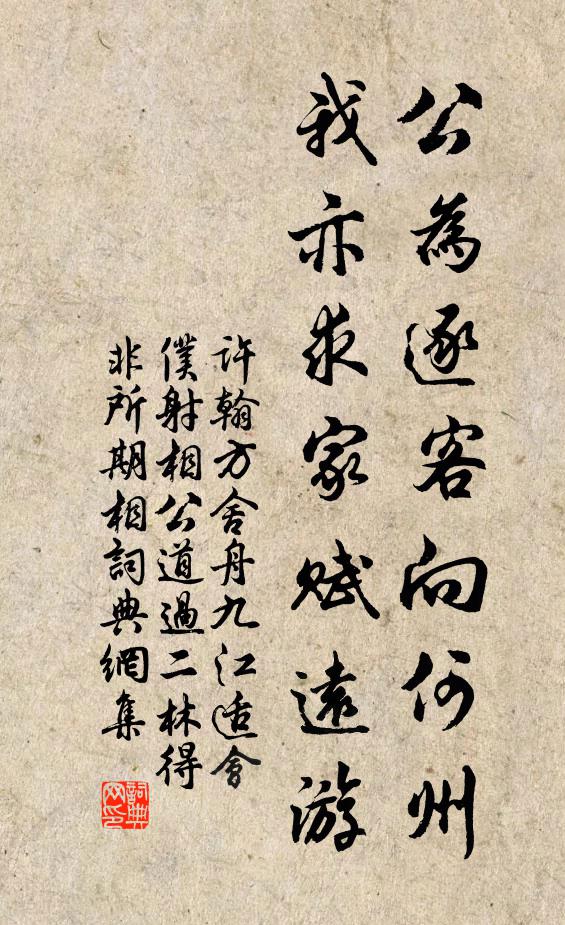 公為逐客向何州
我亦求家賦遠游
許翰方舍舟九江适會
僕射相公道過二林得
非所期相詞典網集
詞典
网印